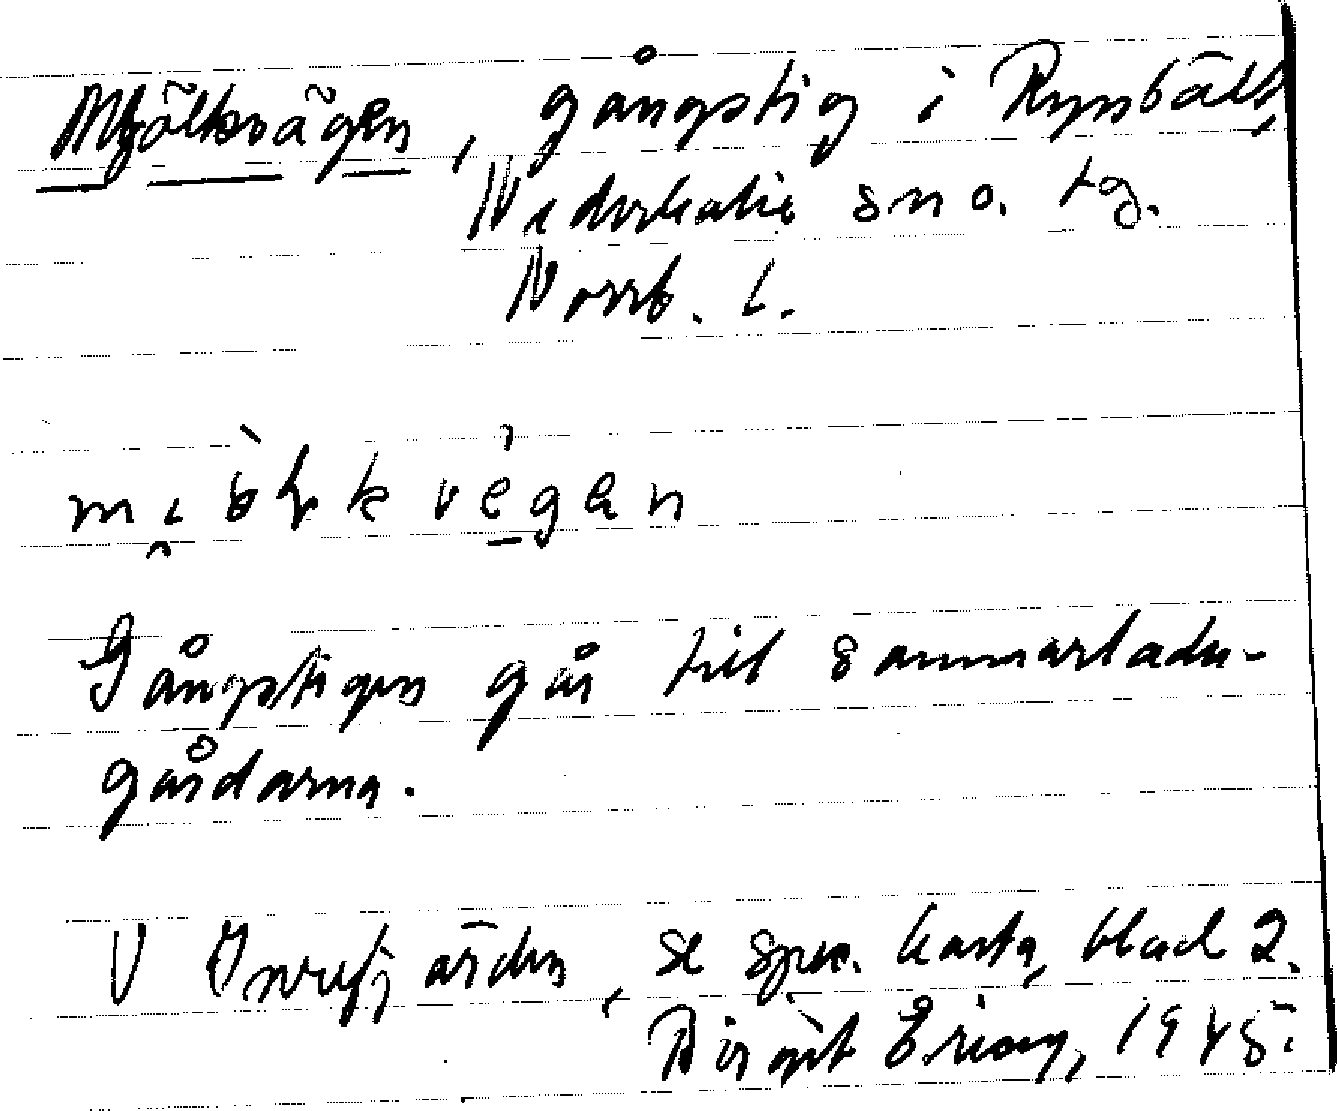 Mjölkvägen, gångstig i Rynbäck,
Nederkalix sn o. tg.
Norrb. l.
Gångstigen går till sommarladu-
gårdarna.
V Inrefjärden, se spec. karta, blad 2.
Birgit Ericson, 1945.